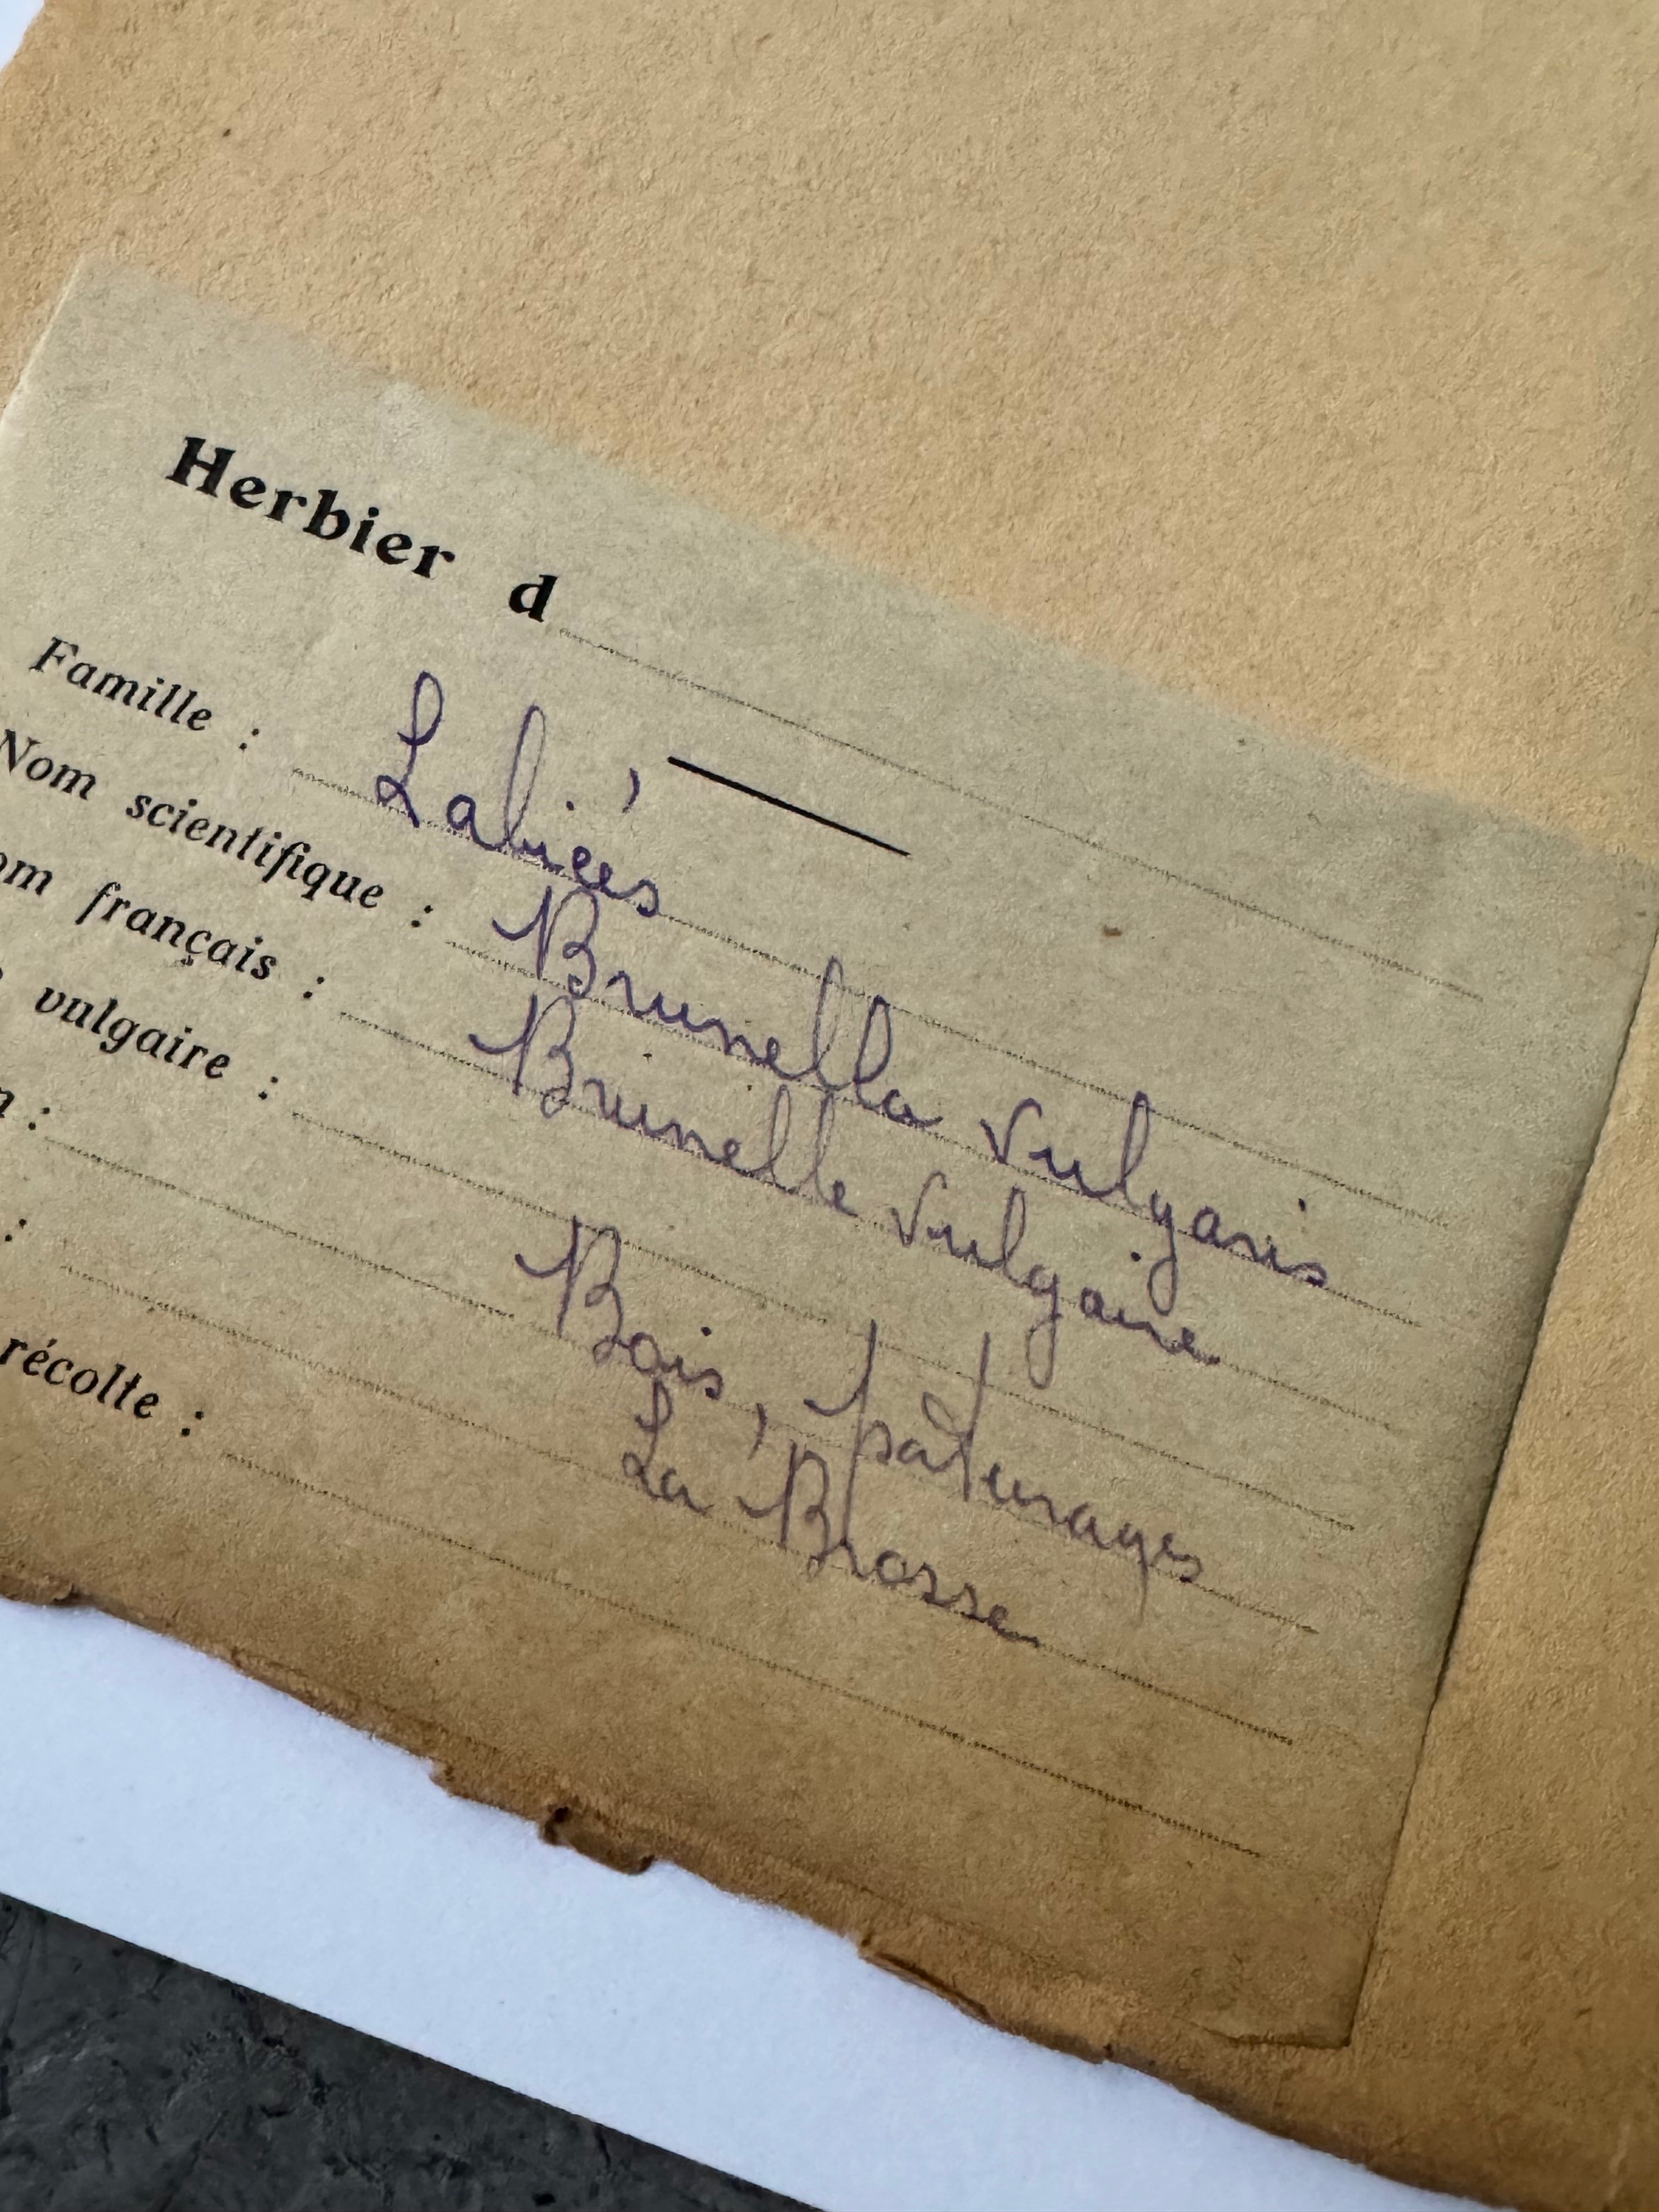 Herbier d
Famille : Labiées
Nom scientifique : Brunella vulgaris
om français : Brunelle vulgaire
vulgaire :
n : Bois, pâturages
: La Brosse
récolte :